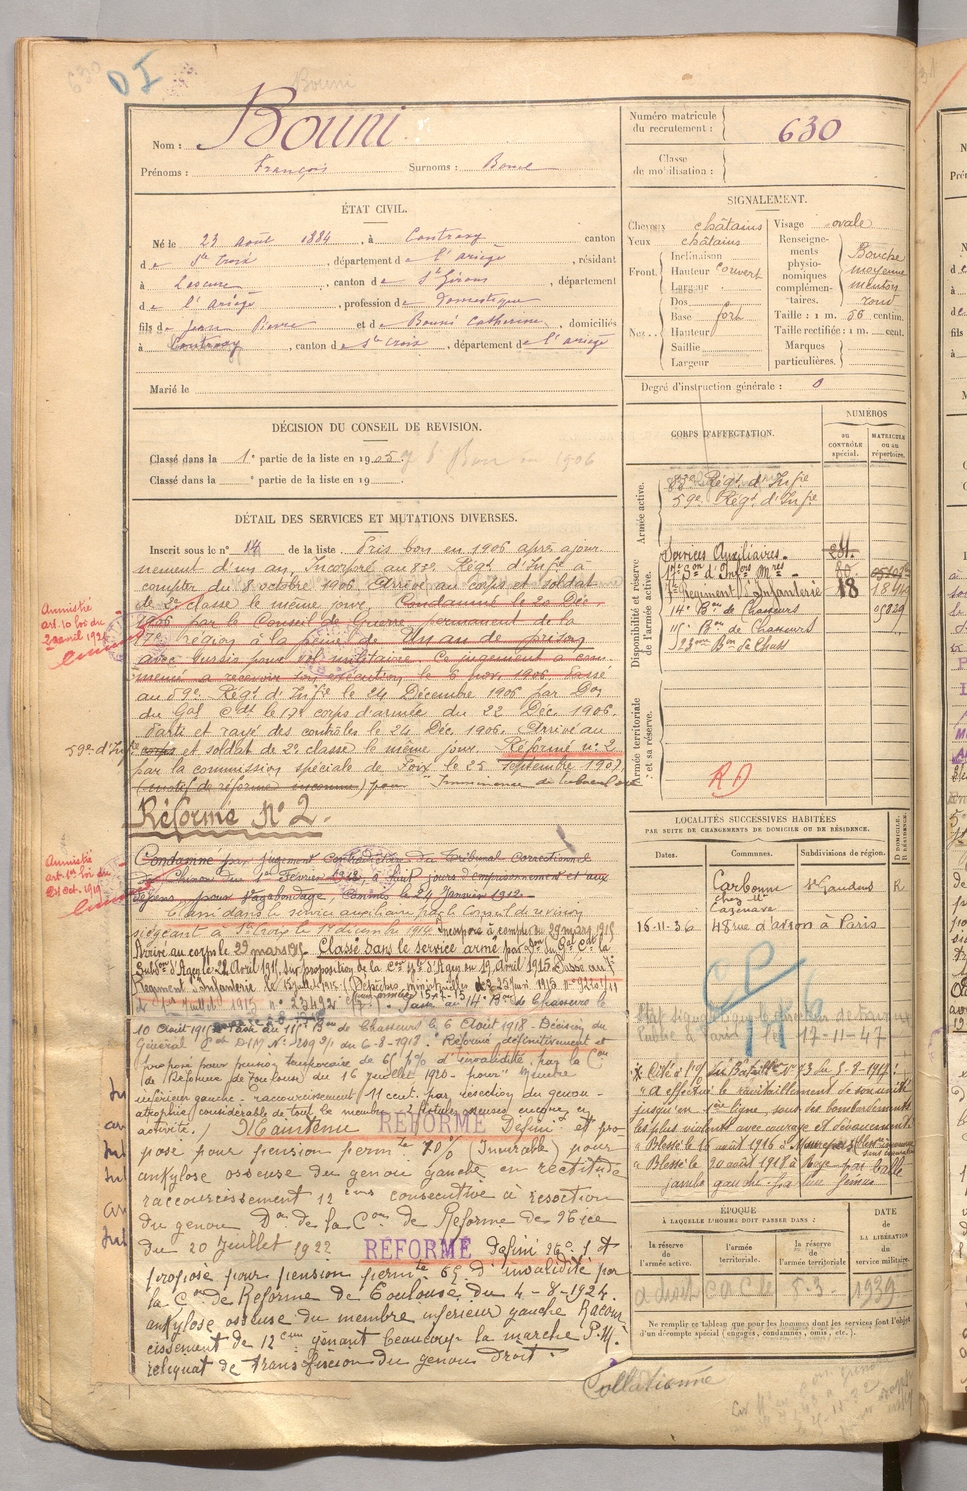 630
D I
Bouni
Nom : Bouni
Prénoms : François Surnoms :
ÉTAT CIVIL.
Né le 23 août 1884, à Contrazy canton
de Ste Croix, département de l'Ariège, résidant
à Lescure, canton de St Girons, département
de l'Ariège, profession de Domestique
fils de Jean Pierre et de Bouni Catherine, domiciliés
à Contrazy, canton de Ste Croix, département de l'Ariège
Marié le
DÉCISION DU CONSEIL DE REVISION.
Classé dans la 1e partie de la liste en 1905 Bon en 1906
Classé dans la e partie de la liste en 19
DÉTAIL DES SERVICES ET MUTATIONS DIVERSES.
Inscrit sous le n° 14 de la liste. Pris bon en 1906 après ajour
nement d'un an, Incorporé au 83e Régt d'Infie à
compter du 8 octobre 1906. Arrivé au corps et soldat
de 2e classe le même jour. Condamné le 20 Déc
1906 par le Conseil de Guerre permanent de la
17e région à la peine de Un an de prison
avec sursis pour vol militaire. Ce jugement a com
mencé à recevoir son exécution le 6 nov. 1906. Passé
au 59e Régt d'Infie le 24 Décembre 1906 par Don
du Gal Cdt le 17e corps d'armée du 22 Déc 1906.
Parti et rayé des contrôles le 24 Déc. 1906. Arrivé au
59e d'Infie corps et soldat de 2e classe le même jour. Réformé n° 2
par la commission spéciale de Foix le 25 septembre 1907.
(motif de réforme inconnu) pour
Réformé N° 2.
Amnistié
art. 10 loi du
Condamné par jugement contradictoire du Tribunal Correctionnel
de Chinon du 1er Février 1912, à huit jours d'emprisonnement et aux
dépens, pour vagabondage, commis le 24 Janvier 1912.
Amnistié
art. 1er loi du
24 oct. 1919
Classé dans le service auxiliaire par le Conseil de révision
siégeant à Ste Croix le 1er décembre 1914. Incorporé à compter du 29 mars 1915
Arrivé au corps le 29 mars 1915. Classé dans le service armé par Don du Gal Cdt la
Subdon d'Agen le 22 Avril 1915, sur proposition de la Con sple d'Agen du 19 Avril 1915. Passé au 7e
Régiment d'Infanterie le 15 juillet 1915 (Dépêches ministérielles
n° 23492 Passé au 14e Bon de Chasseurs le
10 Août 191 Passé au 11e Bon de Chasseurs le 6 Août 1918. Décision du
Général du 6-8-1918. Réformé définitivement et
proposé pour pension temporaire de 65 % d'invalidité, par la Con
de Réforme de Toulouse du 16 juillet 1920 pour
inférieur gauche : raccourcissement 11 cent. par résection du genou
atrophie considérable de tout le membre 2 fistules osseuses encore en
activité. / Maintenu RÉFORMÉ Définif et pro
posé pour pension permte 70% (Incurable) pour
ankylose osseuse du genou gauche en rectitude
raccourcissement 12 cms consécutive à résection
du genou Don de la Con de Réforme de Nice
du 20 Juillet 1922 RÉFORMÉ Défini
proposé pour pension permte 65 d'invalidité par
la Con de Réforme de Toulouse du 4-8-1924.
ankylose osseuse du membre inférieur gauche Racour
cissement de 12 cm gênant beaucoup la marche P.M.
reliquat de du genou droit.
Numéro matricule
du recrutement : 630
Classe
de mobilisation :
SIGNALEMENT.
Cheveux châtains
Yeux châtains
Front. Inclinaison
Hauteur couvert
Largeur
Nez. Dos
Base fort
Hauteur
Saillie
Largeur
Visage ovale
Renseigne-
ments
physio-
nomiques
complémen-
taires.
Bouche
moyenne
menton
rond
Taille : 1 m. 56 centim.
Taille rectifiée : 1 m. cent.
Marques
particulières.
Degré d'instruction générale : 0
CORPS D'AFFECTATION.
NUMÉROS
au
CONTRÔLE
spécial.
MATRICULE
ou au
répertoire.
Armée active.
83e Régt d'Infie
59e Régt d'Infie
Disponibilité et réserve
de l'armée active.
Services Auxiliaires.
17e Son d'Infrs Mres
7e Régiment d'Infanterie 18
14e Bon de Chasseurs
11e Bon de Chasseurs
23eme Bon de Chass
Armée territoriale
et sa réserve.
LOCALITÉS SUCCESSIVES HABITÉES
PAR SUITE DE CHANGEMENTS DE DOMICILE OU DE RÉSIDENCE.
Dates. Communes. Subdivisions de région. D DOMICILE. R RÉSIDENCE.
Carbonne St Gaudens R
chez Mr
Cazenave
16-11-36 48 rue d'avron à Paris
17-11-47
Cité à l'O/ du Bataillon N° 3 du 5-8-1917 :
"A effectué le ravitaillement de son unité
jusqu'en 1ère ligne, sous des bombardements
les plus violents avec courage et dévouement"
Blessé le 16 août 1916 à Maurepas
Blessé le 20 août 1918 à Roye par balle
jambe gauche
ÉPOQUE
À LAQUELLE L'HOMME DOIT PASSER DANS :
la réserve
de
l'armée active.
l'armée
territoriale.
la réserve
de
l'armée territoriale
DATE
de
LA LIBÉRATION
du
service militaire.
1939
Ne remplir ce tableau que pour les hommes dont les services font l'objet
d'un décompte spécial (engagés, condamnés, omis, etc.).
Collationné